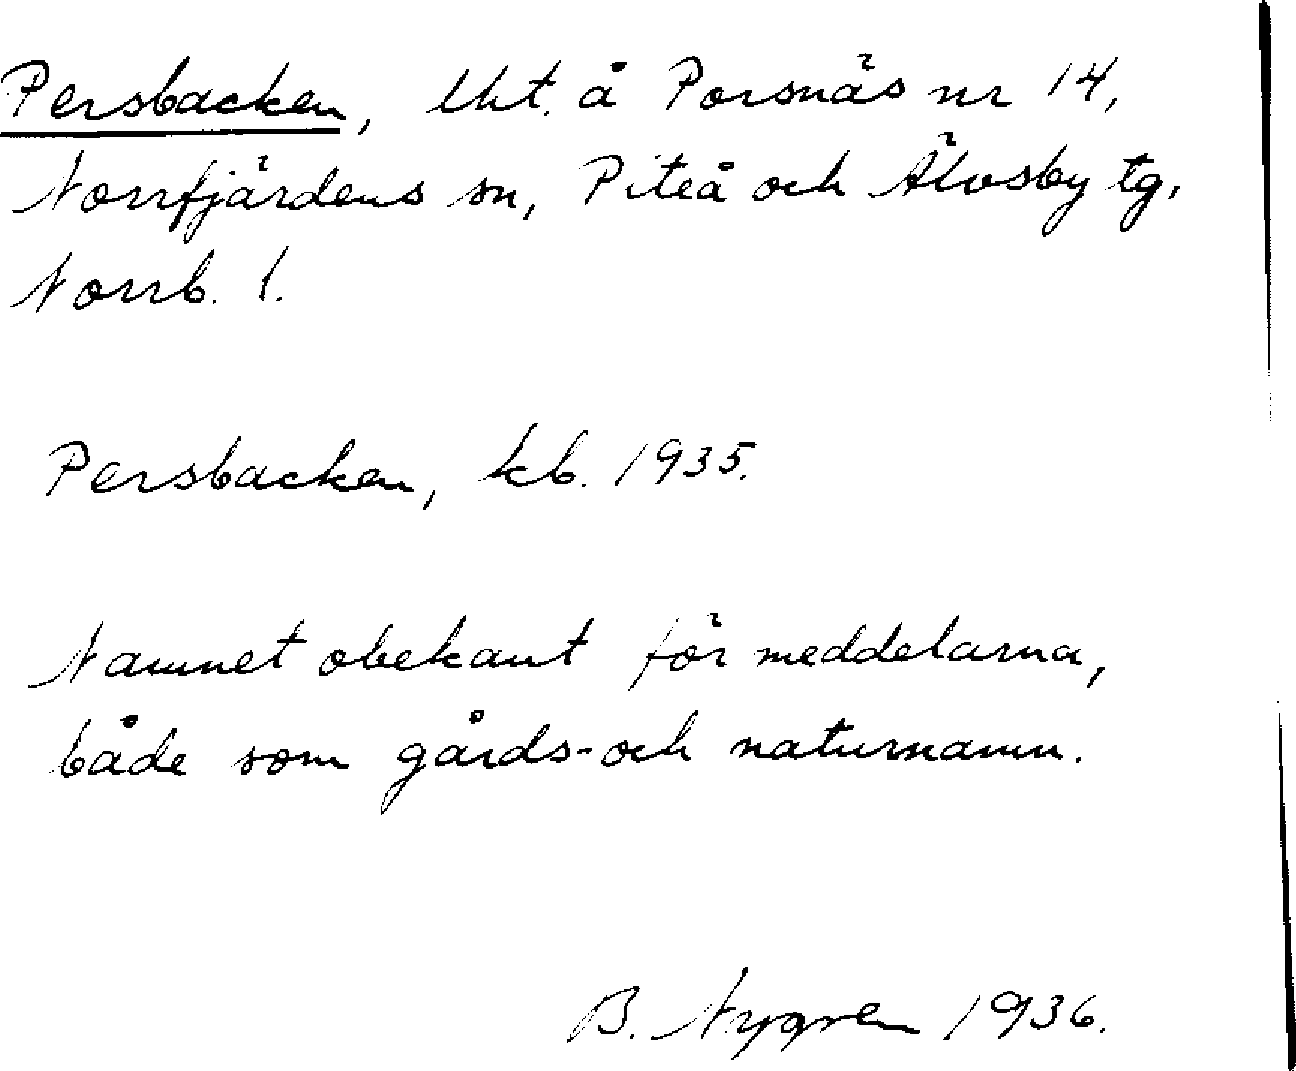 Persbacken, lht. å Porsnäs nr 14,
Norrfjärdens sn, Piteå och Älvsby tg,
Norrb. l.
Persbacken, kb. 1935.
Namnet obekant för meddelarna,
både som gårds- och naturnamn.
B. Nygren 1936.